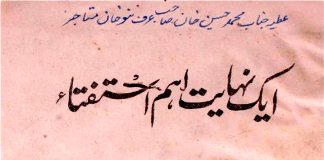 عطیہ جناب محمد حسین خان صاحب عرف ننو خان متاجر
ایک نہایت اہم استفتاء